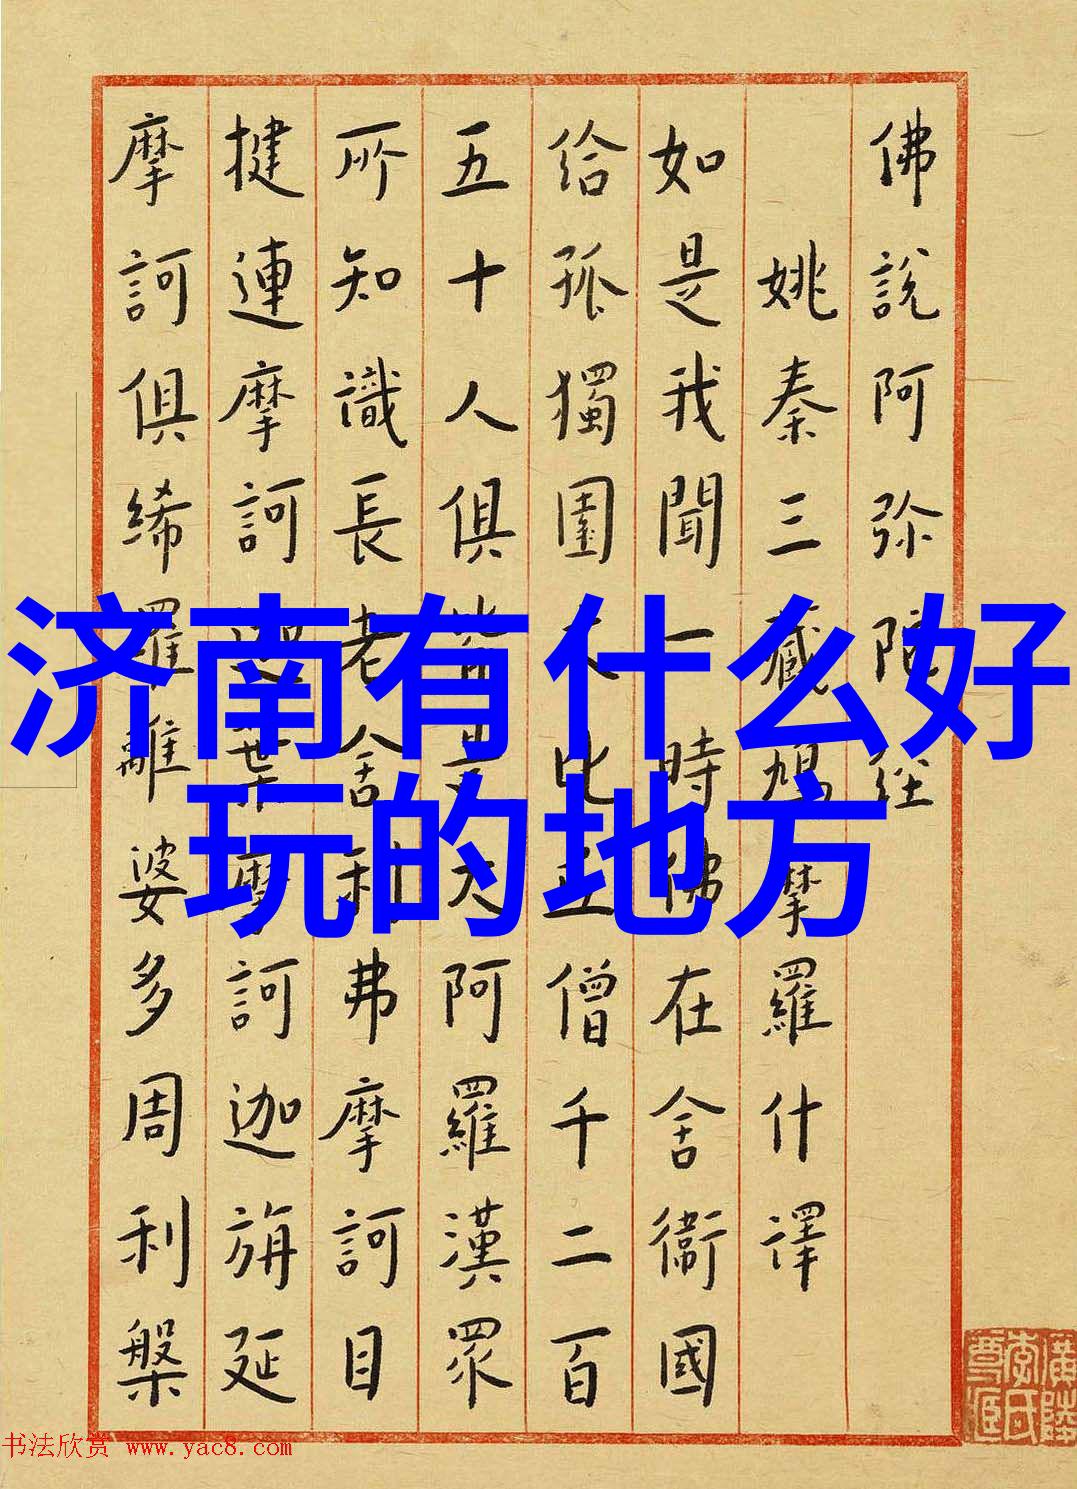 济南有什么好
玩的地方
佛說阿弥陀経
姚秦三藏鳩摩羅什譯
如是我聞一時佛在舍衛國
给孤獨園大比丘僧千二百
五十人俱皆是大阿羅漢眾
所知識長老舍利弗摩訶目
揵連摩訶迦葉摩訶迦旃延
摩訶俱絺羅離婆多周利槃
书法欣赏 www.yac8.com